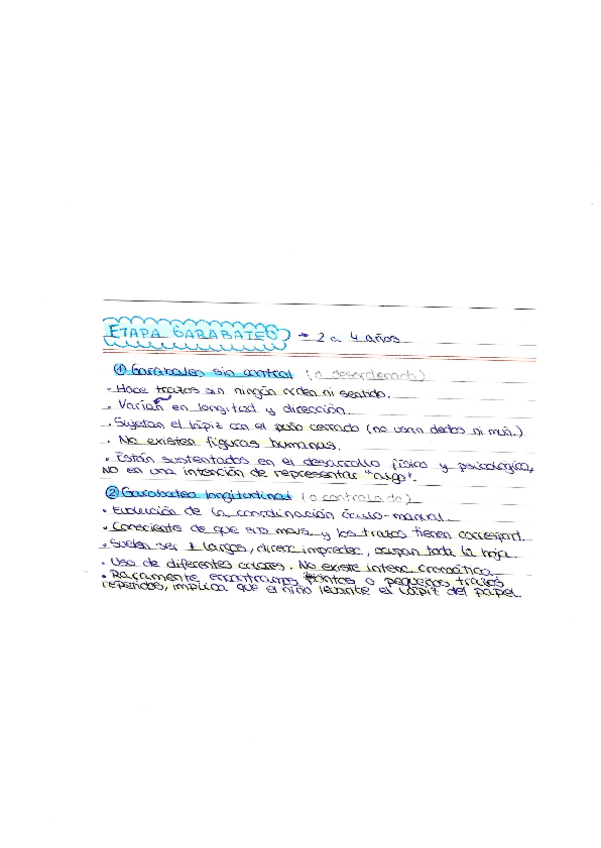 ETAPA GARABATEO → 2 a 4 años
① Garabateo sin control (o desordenado)
· Hace trazos sin ningún orden ni sentido.
· Varían en longitud y dirección.
· Sujetan el lápiz con el puño cerrado (no usan dedos ni muñ.)
· No existen figuras humanas.
· Están sustentados en el desarrollo físico y psicológico,
NO en una intención de representar "algo".
② Garabateo longitudinal (o controlado)
· Evolución de la coordinación óculo-manual
· Consciente de que sus movs. y los trazos tienen correspond.
· Suelen ser largos, direc impredec, ocupan toda la hoja.
· Uso de diferentes colores. No existe intenc cromática
· Raramente encontramos puntos o pequeños trazos
repetidos, implica que el niño levante el lápiz del papel.